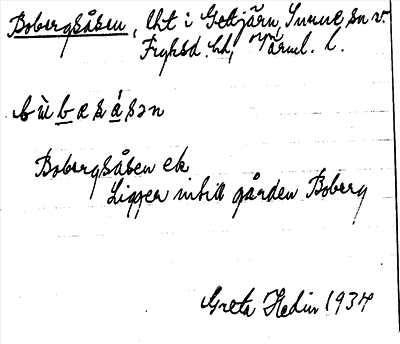 Bobergsåsen, lht i Gettjärn, Sunne sn v.
Fryksd. hd, Värml. l.
bùbæsåsən
Bobergsåsen ek
Ligger intill gården Boberg
Greta Hedin 1934